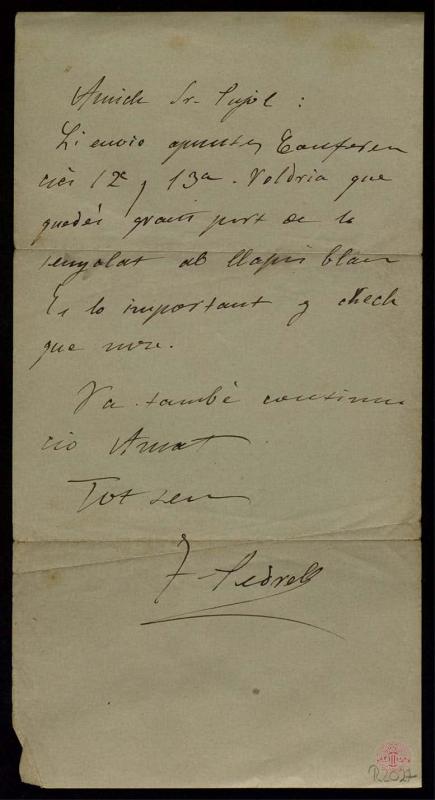 Amich Sr. Pujol :
Li envio apuntes Conferen
cies 12e y 13a. Voldria que
quedés gran part de lo
senyalat ab llapis blau
Es lo important y
que
Va també continua
ció Amat
Tot seu
F. Pedrell
R.2027